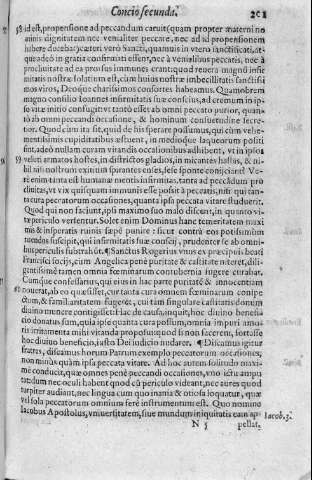 Concio secunda. 201
id est, propensione ad peccandum caruit (quam propter materni nominis
dignitatem nec venialiter peccare, nec ad id propensionem
habere docebat) cæteri verò Sancti, quamuis in vtero sanctificati, atque
adeò in gratia confirmati essent, nec à venialibus peccatis, nec à
procliuitate ad ea prorsus immunes erant: quod reuera magnũ infirmitatis
nostræ solatium est, cùm huius nostræ imbecillitatis sanctissimos
viros, Deosque charissimos consortes habeamus. Quamobrem
magno consilio Ioannes infirmitatis suæ conscius, ad eremum in ipso
vitæ initio confugit, vt tantò esset ab omni peccato purior, quantò
ab omni peccandi occasione, & hominum consuetudine secretior.
Quod cùm ita sit, quid de his sperare possumus, qui cùm vehementissimis
cupiditatibus æstuent, in medios que laqueorum positi
sint, adeò parum curant vitandis occasionibus adhibent, vt in ipsos
59 veluti armatos hostes, in districtos gladios, in micantes hastas, & nihil
nisi nostrum exitium spirantes enses, sese sponte conijciant? Verùm
enim tanta est humanæ mentis infirmitas, tanta ad peccãdum procliuitas,
vt vix quisquam immunis esse possit à peccatis, nisi qui tanta
cura peccatorum occasiones, quanta ipsa peccata vitare studuerit.
Quod qui non faciunt, ipsi maximo suo malo discunt, in quanto vitæ
periculo versentur. Solet enim Dominus hanc temeritatem maximis
& insperatis ruinis sæpè punire: sicut contrà eos potissimùm
tuendos suscipit, qui infirmitatis suæ conscij, prudenter se ab omnibus
periculis subtrahũt. ¶Sanctus Rogerius vnus ex præcipuis beati
Francisci socijs, cum Angelica penè puritate & castitate niteret, diligentissimè
tamen omnia fœminarum contubernia fugere curabat.
Cumque confessarius, qui eius in hac parte puritatẽ & innocentiam
60 nouerat, ab eo quæsisset, cur tanta cura omnem fœminarum conspectum,
& familiaritatem fugeret, cui tam singulare castitatis donum
diuino munere contigisset: Hac de causa, inquit, hoc diuino beneficio
donatus sum, quia ipse quanta cura possum, omnia impuri amoris
irritamenta multi vitanda propofui: quod si non facerem, fortasse
hoc diuino beneficio, iusto Dei iudicio nudarer. ¶Discamus igitur
fratres, diuinorum horum Patrum exemplo peccatorum occasiones,
non minùs quàm ipsa peccata vitare. Ad hoc autem solitudo maximè
conducit, quæ omnes penè peccandi occasiones, vno ictu amputat:
dum nec oculi habent quod cũ periculo videant, nec aures quod
turpiter audiant, nec lingua cum quo inania & otiosa loquatur, quæ
vel sola peccatorum omnium ferè instrumentum est. Quo nomine
Iacobus Apostolus, vniuersitatem, siue mundum iniquitatis eam ap- Iacob. 3.
N 5 pellat.